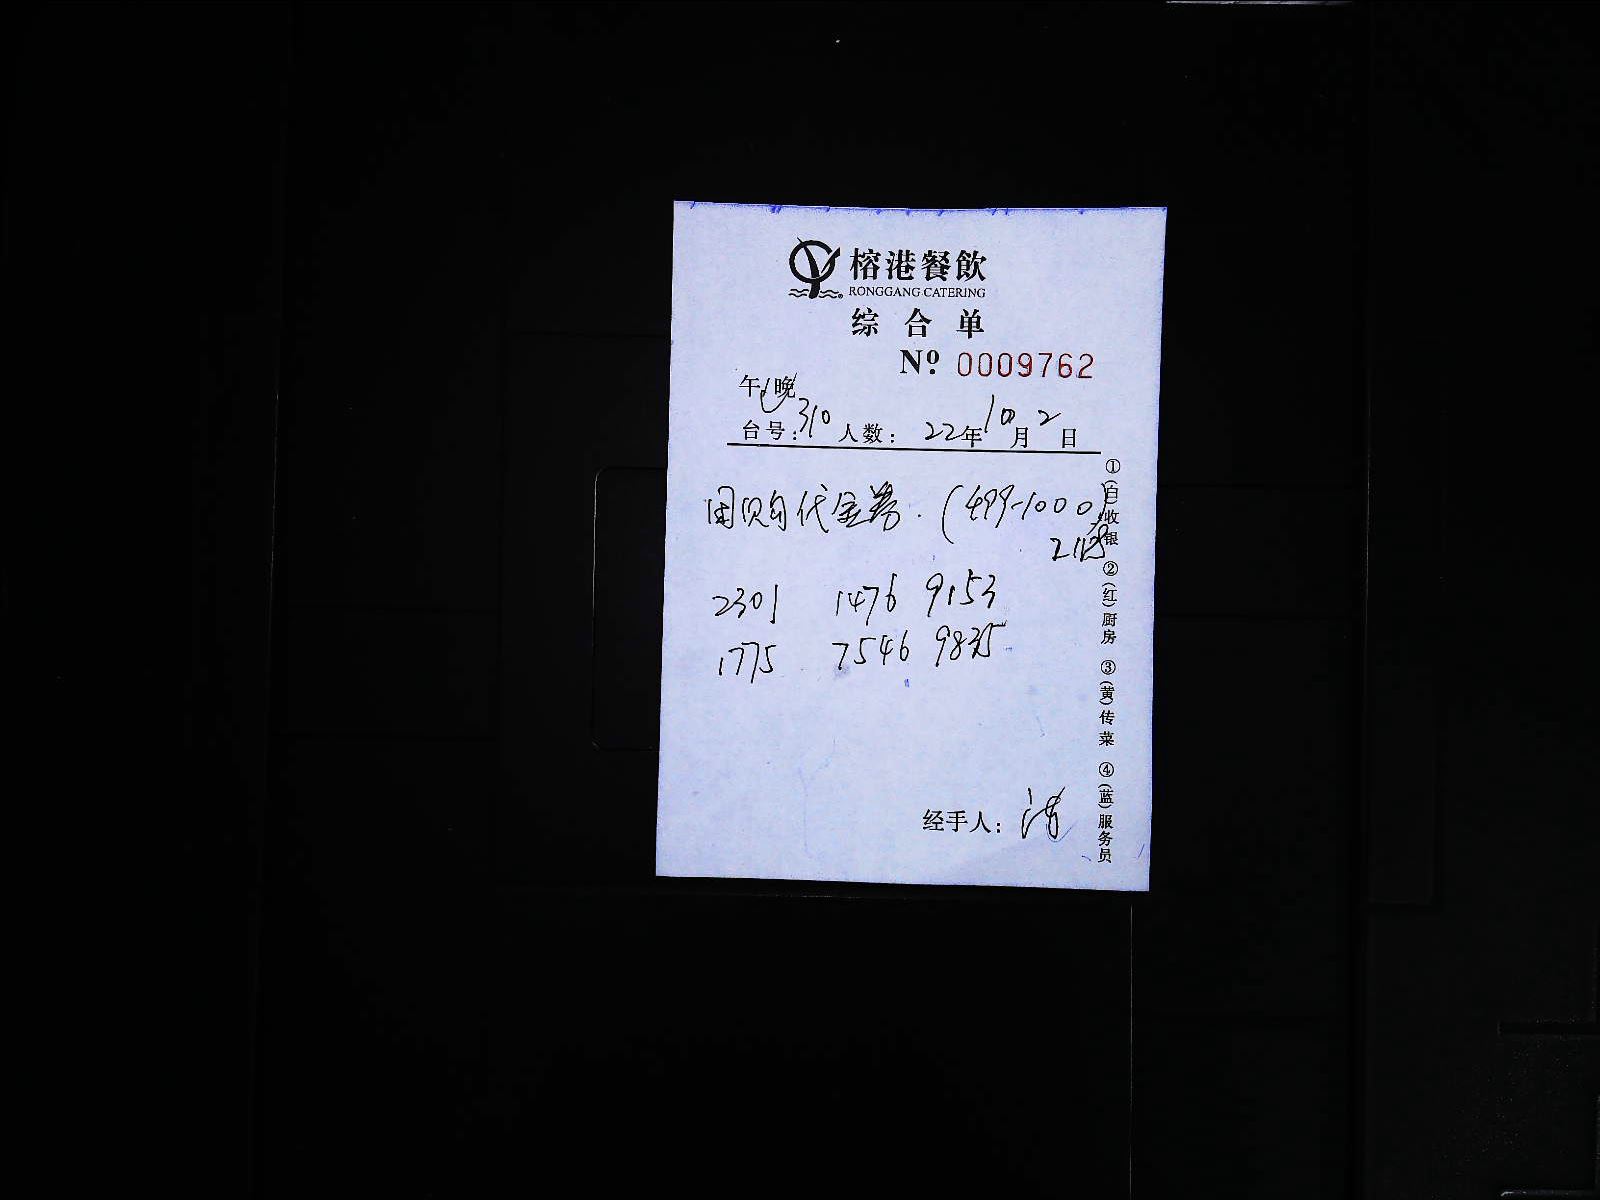 榕港餐飲
RONGGANG CATERING
综合单
Nº 0009762
午/晚
台号: 310 人数: 22年10月2日
团购代金券.(499-1000)
2301 1476 9153
1775 7546 9835
经手人:
①(白)收银 ②(红)厨房 ③(黄)传菜 ④(蓝)服务员